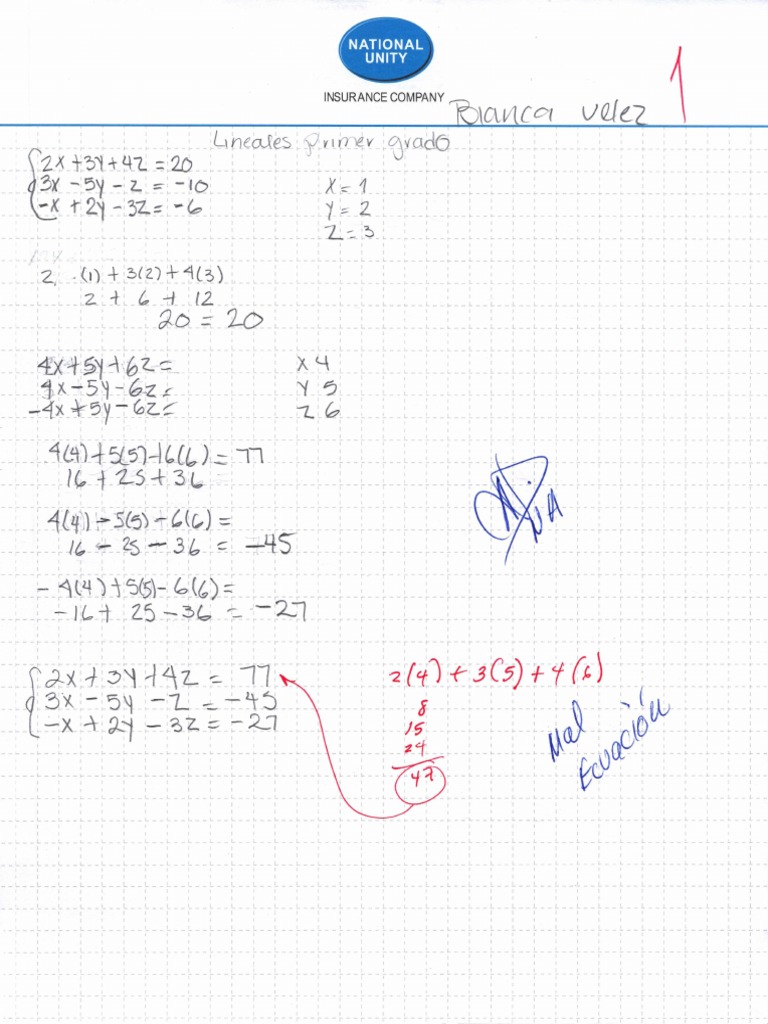 NATIONAL
UNITY
INSURANCE COMPANY
Bianca Velez
1
Lineales primer grado
2x + 3y + 4z = 20
3x - 5y - z = -10
-x + 2y - 3z = -6
x = 1
y = 2
z = 3
2. (1) + 3(2) + 4(3)
2 + 6 + 12
20 = 20
4x + 5y + 6z =
4x - 5y - 6z =
-4x + 5y - 6z =
x 4
y 5
z 6
4(4) + 5(5) - 16(6) = 77
16 + 25 + 36
4(4) - 5(5) - 6(6) =
16 - 25 - 36 = -45
- 4(4) + 5(5) - 6(6) =
-16 + 25 - 36 = -27
2x + 3y + 4z = 77
3x - 5y - z = -45
-x + 2y - 3z = -27
2(4) + 3(5) + 4(6)
8
15
24
47
Mal
Ecuación